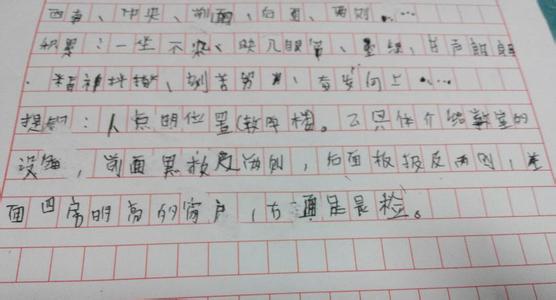 西南、中央、前面、后面、两侧、…
积累：一尘不染、映入眼帘、墨绿、书声朗朗
、精神抖擞、刻苦努力、奋发向上…
提纲：1、点明位置(教学楼。2具体介绍教室的
设施，前面黑板及两侧，后面板报及两侧，
面四扇明亮的窗户，